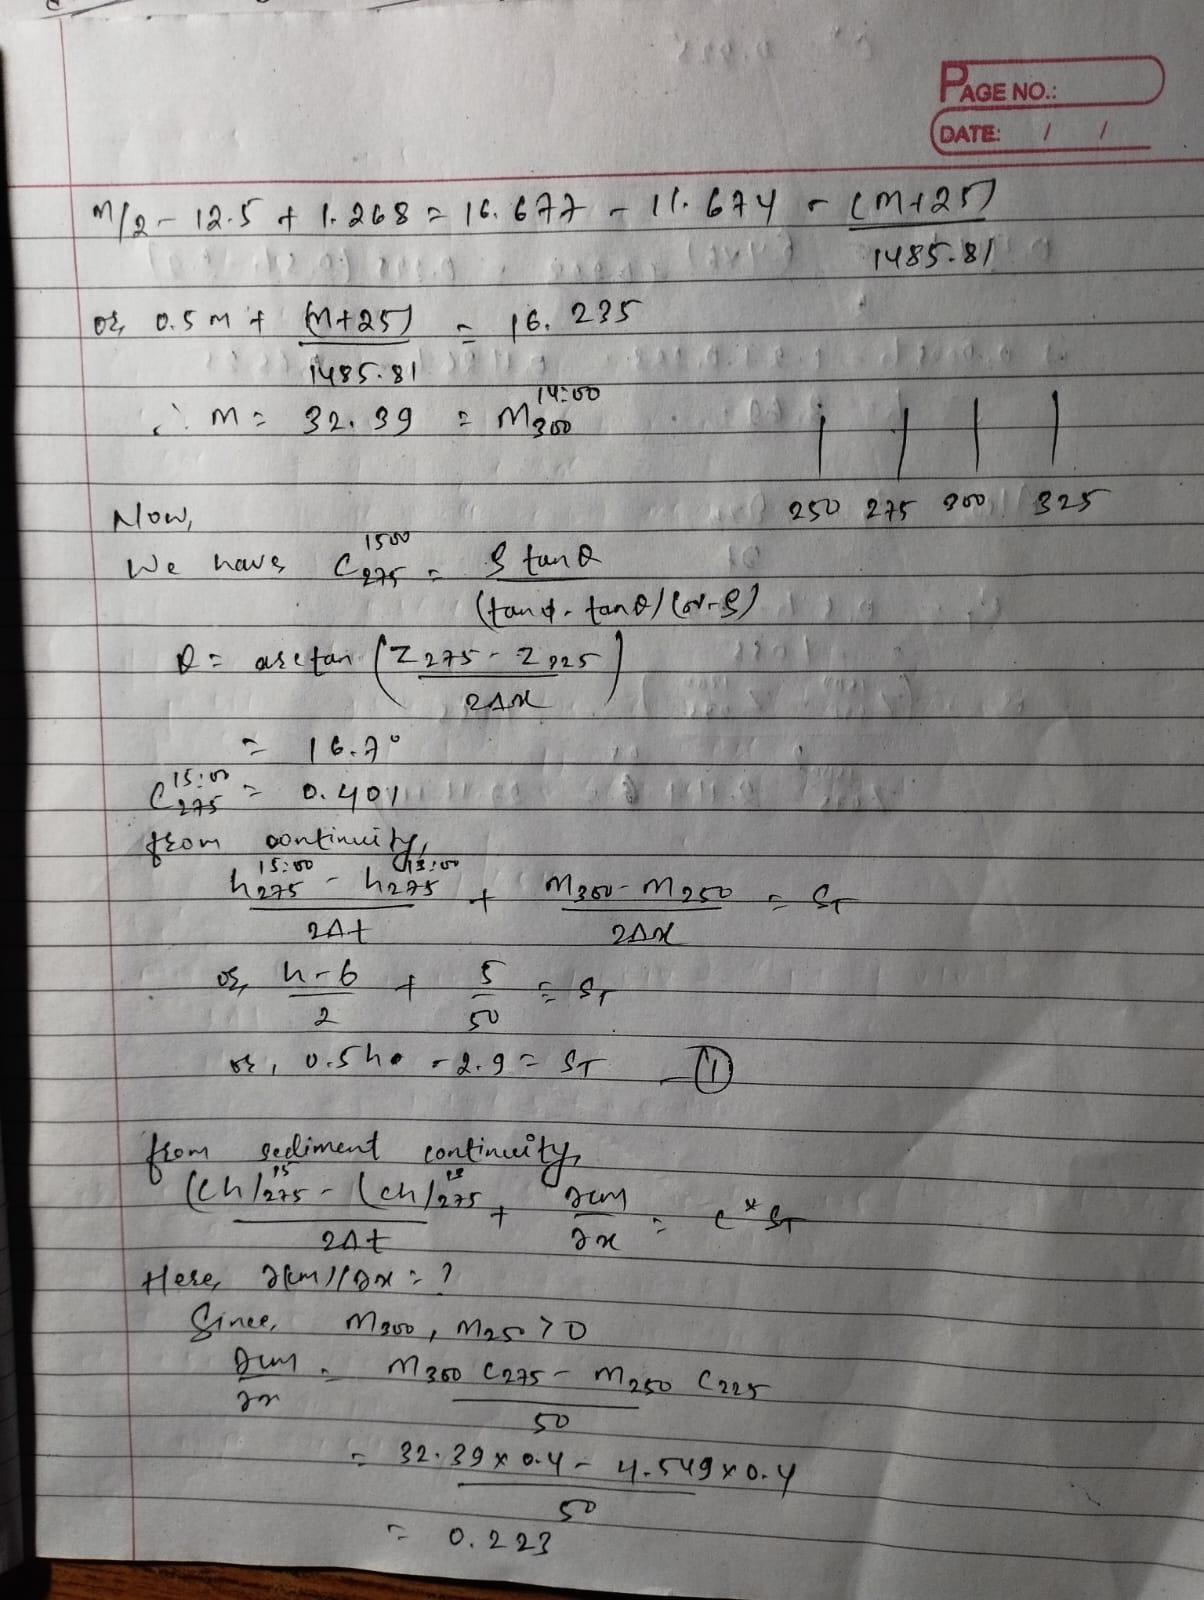 PAGE NO.:
DATE: / /
m/2 - 12.5 + 1.268 = 16.677 - 11.674 - (m+25)/1485.81
or, 0.5 m + (m+25)/1485.81 = 16.235
∴ m = 32.39 = M₃₀₀^14:00
250 275 300 325
Now,
We have C₂₇₅^1500 = ρ tanθ / (tanφ - tanθ)(σ-ρ)
θ = arctan (Z₂₇₅ - Z₃₂₅ / 2Δx)
= 16.7°
C₂₇₅^15:00 = 0.401
from continuity,
h₂₇₅^15:00 - h₂₇₅^13:00 / 2Δt + M₃₀₀ - M₂₅₀ / 2Δx = S_T
or, h-6 / 2 + 5/50 = S_T
or, 0.5h - 2.9 = S_T — ①
from sediment continuity,
(Ch)₂₇₅^15 - (Ch)₂₇₅^13 / 2Δt + ∂cm/∂x = c* S_T
Here, ∂(cm)/∂x = ?
Since, M₃₀₀, M₂₅₀ > 0
∂cm/∂x = M₃₀₀ C₂₇₅ - M₂₅₀ C₂₂₅ / 50
= 32.39 x 0.4 - 4.549 x 0.4 / 50
= 0.223